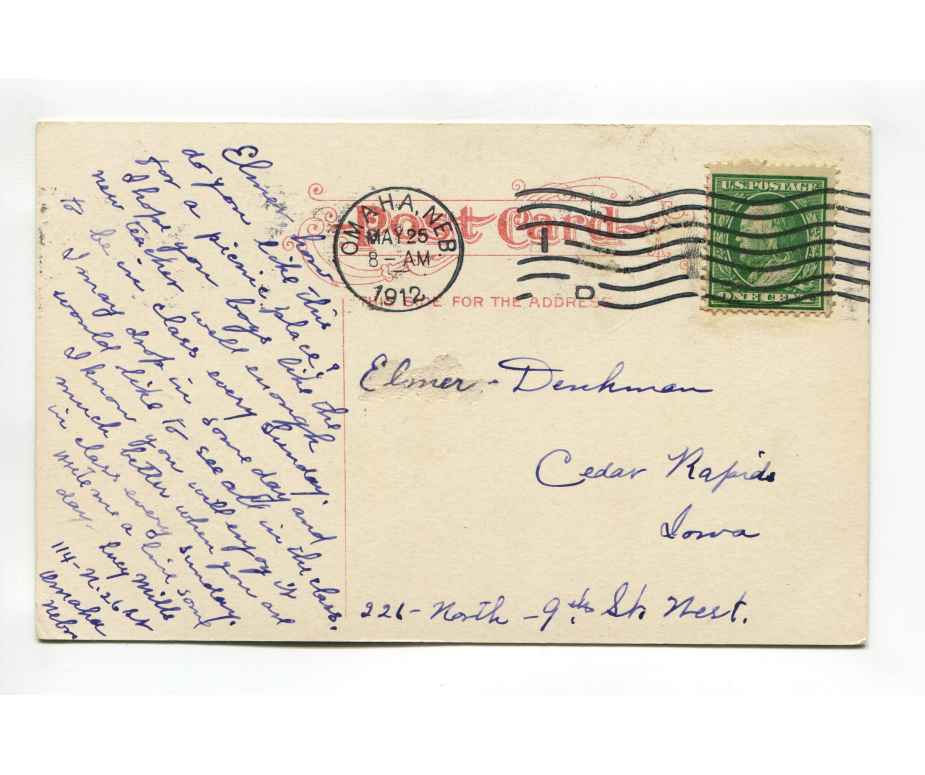 Elmer how
do you like this
for a picnic place?
I hope you like the
new teacher well enough
to be in class every Sunday.
I may drop in some day and
would like to see all in the class.
I know you will enjoy it
much better when you are
in class every Sunday.
Write me a line some
day. Lucy Mills
114-N. 26 St
Omaha
Nebr
Post Card
OMAHA, NEB.
MAY 25
8-AM
1912
1
D
U.S. POSTAGE
ONE CENT
THIS SIDE FOR THE ADDRESS
Elmer - Denkman
Cedar Rapids
Iowa
226 - North - 9th St. West.